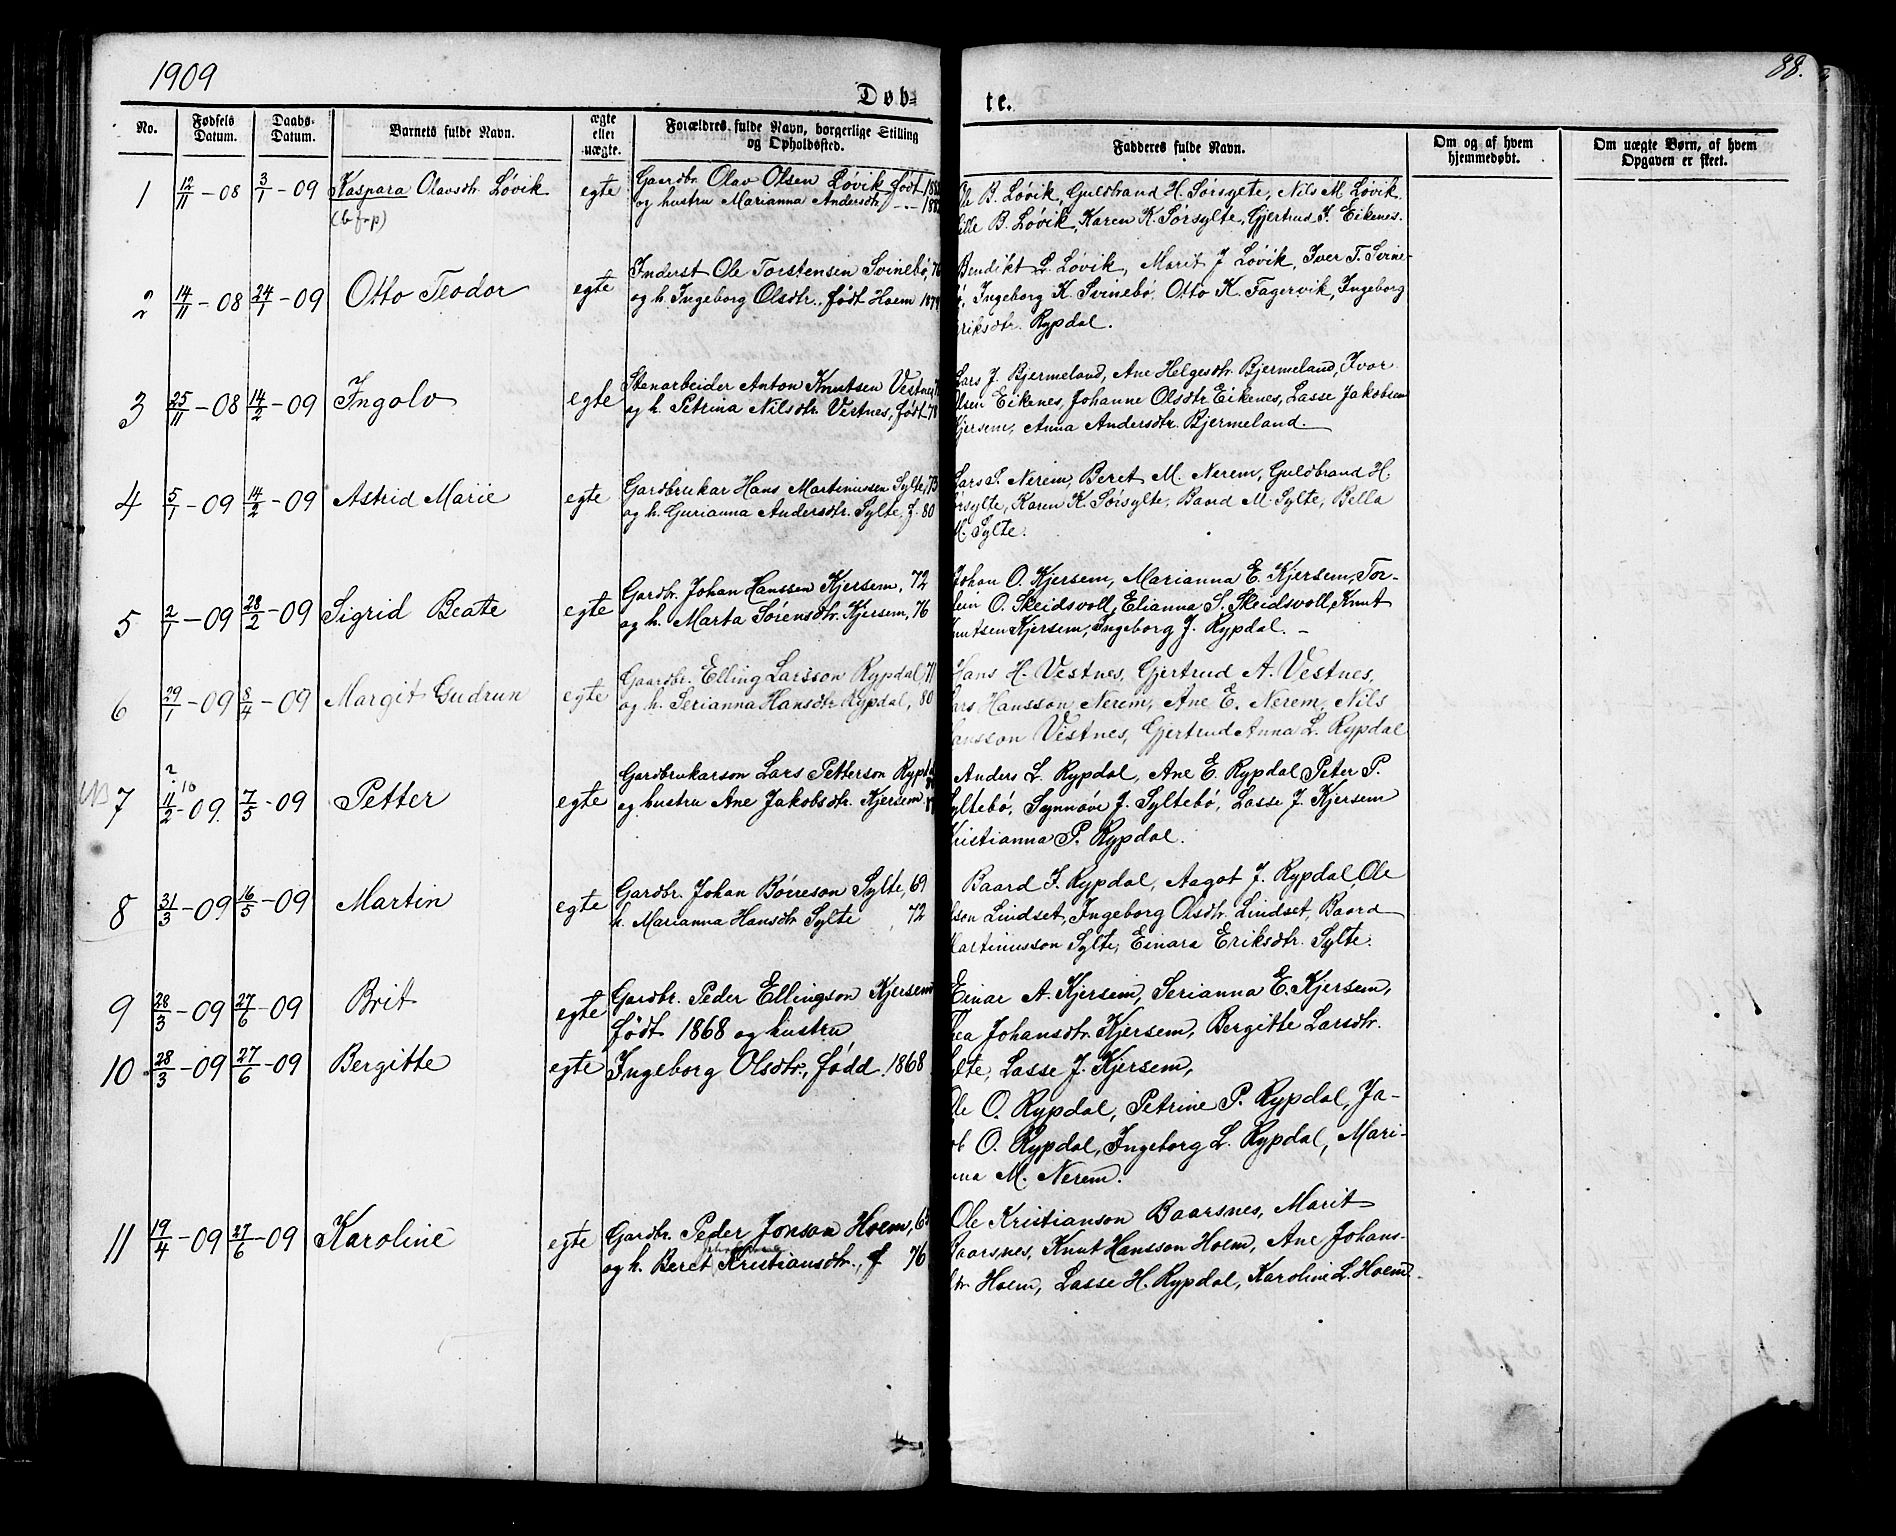 1909
88.
Døb-
te.
No.
Fødsels Datum.
Daabs-Datum.
Barnets fulde Navn.
ægte eller uægte.
Forældres fulde Navn, borgerlige Stilling og Opholdssted.
Fadderes fulde Navn.
Om og af hvem hjemmedøbt.
Om uægte Børn, af hvem Opgaven er skeet.
1 12/11-08 3/1-09 Kaspara Olavsdtr. Løvik egte Gaardbr. Olav Olsen Løvik født
og hustru Marianna Andersdtr.
B. Løvik, Guldbrand H. Sørsylte, Nils M. Løvik
B. Løvik, Karen K. Sørsylte, Gjertrud I. Eikenes.
2 14/11-08 24/1-09 Otto Teodor egte Inderst Ole Torstensen Svinebø, 76
og h. Ingeborg Olsdtr., født Hoem
Bendikt L. Løvik, Marit J Løvik, Iver T. Svine-
Ingeborg K. Svinebø, Otto K. Fagervik, Ingeborg
Rypdal.
3 25/11-08 14/2-09 Ingolv egte Stenarbeider Anton Knutsen Vestnes
og h. Petrina Nilsdtr. Vestnes, født 78
Lars J. Bjermeland, Ane Helgesdtr Bjermeland, Ivar
Eikenes, Johanne Olsdtr. Eikenes, Lasse Jakobsen
Kjersem, Anna Andersdtr. Bjermeland.
4 5/1-09 14/2-09 Astrid Marie egte Gardbrukar Hans Martinussen Sylte, 73
og h. Gurianna Andersdtr. Sylte, f. 80
Lars S. Nerem, Beret M. Nerem, Guldbrand H.
Karen K. Sørsylte, Baard M. Sylte, Bella
M. Sylte.
5 2/1-09 28/2-09 Sigrid Beate egte Gardbr. Johan Hanssen Kjersem, 72
og h. Marta Sørensdtr. Kjersem, 76
Johan O. Kjersem, Marianna E. Kjersem, Tor-
O. Skeidsvoll, Elianna S. Skeidsvoll, Knut
Kjersem, Ingeborg J. Rypdal. -
6 29/1-09 8/4-09 Margit Gudrun egte Gaardbr. Elling Larsson Rypdal, 71
og h. Serianna Hansdtr Rypdal, 80
Hans H. Vestnes, Gjertrud A. Vestnes,
Hansson Nerem, Ane E. Nerem, Nils
Vestnes, Gjertrud Anna L. Rypdal
7 11/2-09. 7/5-09 Petter egte Gardbrukarson Lars Petterson
og hustru Ane Jakobsdtr. Kjersem
Anders L. Rypdal, Ane E. Rypdal Peter P.
Syltebø, Synnøve J. Syltebø, Lasse J. Kjersem
Kristianna P. Rypdal.
8 31/3-09 16/5-09 Martin egte Gardbr. Johan Børreson Sylte, 69
h. Marianna Hansdtr Sylte, 72
Baard J. Rypdal, Aagot J. Rypdal, Ole
Lindset, Ingeborg Olsdtr. Lindset, Baard
Martinusson Sylte, Einara Eriksdtr. Sylte.
9 28/3-09 27/6-09 Brit egte Gardbr. Peder Ellingson Kjersem
født 1868 og hustru
Einar A. Kjersem, Serianna E. Kjersem,
Johansdtr. Kjersem, Bergitte Larsdtr.
10 28/3-09 27/6-09 Bergitte egte Ingeborg Olsdtr., fødd 1868
Lasse J. Kjersem,
O. Rypdal, Petrine P. Rypdal, Ja-
O. Rypdal, Ingeborg L. Rypdal, Mari-
M. Nerem.
11 19/4-09 27/6-09 Karoline egte Gardbr. Peder Jonson Hoem,
og h. Beret Kristiansdtr., f 76
Ole Kristianson Baarsnes, Marit
Baarsnes, Knut Hansson Hoem, Ane Johans-
dtr Hoem, Lasse H. Rypdal, Karoline L. Hoem.